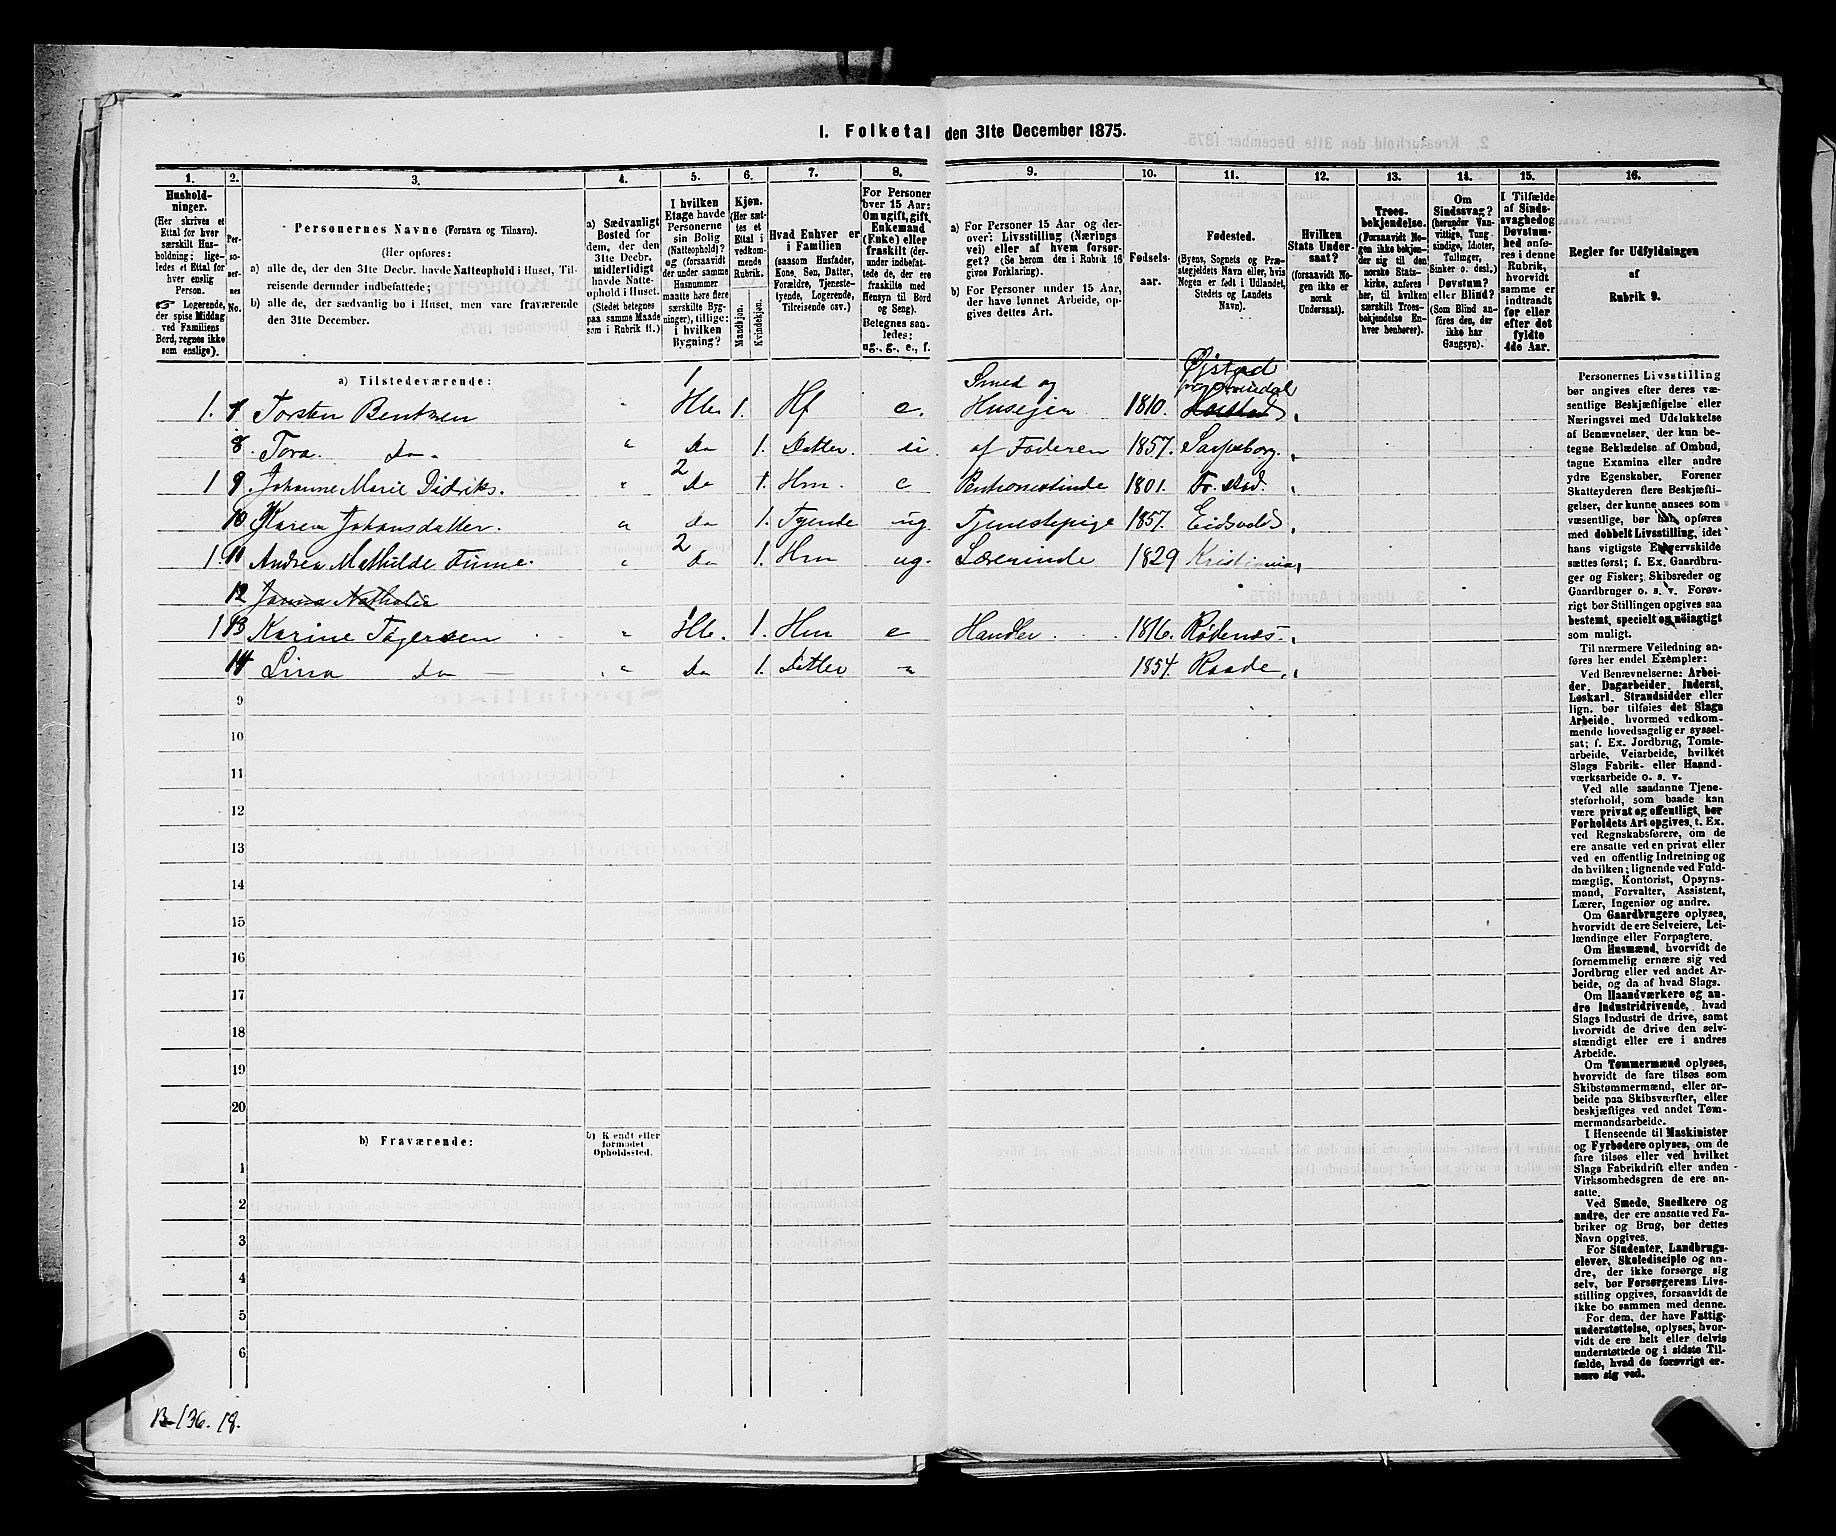 I. Folketal den 31te December 1875.
1. 2. 3. 4. 5. 6. 7. 8. 9. 10. 11. 12. 13. 14. 15. 16.
Hushold-
ninger.
(Her skrives et
Ettal for hver
særskilt Hus-
holdning; lige-
ledes et Ettal for
hver enslig
Person.
☞ Logerende,
der spise Middag
ved Familiens
Bord, regnes ikke
som enslige).
Per-
so-
ner-
nes
No.
Personernes Navne (Fornavn og Tilnavn).
(Her opføres:
a) alle de, der den 31te Decbr. havde Natteophold i Huset, Til-
reisende derunder indbefattede;
b) alle de, der sædvanlig bo i Huset, men vare fraværende
den 31te December.
a) Sædvanligt
Bosted for
dem, der den
31te Decbr.
midlertidigt
havde Natte-
ophold i Huset.
(Stedet betegnes
paa samme Maade
som i Rubrik 11.)
I hvilken
Etage havde
Personerne
sin Bolig
(Natteophold)?
og (forsaavidt
der under samme
Husnummer
maatte høre flere
særskilte Byg-
ninger), tillige:
i hvilken
Bygning?
Kjøn.
(Her sæt-
tes et
Ettal i
vedkom-
mende
Rubrik.
Mandkjøn.
Kvindekjøn.
Hvad Enhver er
i Familien
(saasom Husfader,
Kone, Søn, Datter,
Forældre, Tjeneste-
tyende, Logerende,
Tilreisende osv.)
For Personer
over 15 Aar:
Om ugift, gift,
Enkemand
(Enke) eller
fraskilt (der-
under indbefat-
tede de, der ere
fraskilte med
Hensyn til Bord
og Seng).
Betegnes saa-
ledes:
ug., g., e., f.
a) For Personer 15 Aar og der-
over: Livsstilling (Nærings
vei) eller af hvem forsør-
get? (Se herom den i Rubrik 16
givne Forklaring).
b) For Personer under 15 Aar,
der have lønnet Arbeide, op-
gives dettes Art.
Fødsels-
aar.
Fødested.
(Byens, Sognets og Præ-
stegjeldets Navn eller, hvis
Nogen er født i Udlandet,
Stedets og Landets
Navn).
Hvilken
Stats Under-
saat?
(forsaavidt No-
gen ikke er
norsk
Undersaat).
Troes-
bekjendelse.
(Forsaavidt No-
gen ikke bekjen-
der sig til den
norske Stats-
kirke, anføres
her, til hvilken
særskilt Troes-
bekjendelse En-
hver henhører).
Om
Sindssvag?
(herunder Van-
vittige, Tung-
sindige, Idioter,
Tullinger,
Sinker o. desl.)
Døvstum?
eller Blind?
(Som Blind an-
føres den, der
ikke har
Gangsyn).
I Tilfælde
af Sinds-
svaghed og
Døvstum-
hed anfø-
res i denne
Rubrik,
hvorvidt
samme er
indtraadt
før eller
efter det
fyldte
4de Aar.
Regler for Udfyldningen
af
Rubrik 9.
a) Tilstedeværende:
1. 7 Torsten Bentzen " 1 Hb. 1. Hf e. Smed og Huseier 1810. Øistad
8 Tora do " Do 1. Datter. ū. af Faderen 1857. Sarpsborg.
1 9 Johanne Marie Didriks. " 2 do 1. Hm. e Pentionistinde 1801. Fr. stad.
10 Karen Johansdatter. " do 1. Tyende ug. Tjenestepige 1857. Eidsvold
1. 11 Andrea Mathilde Tiime. " 2 do 1. Hm ug. Lærerinde 1829 Kristiania
12
1 13 Karine Tøgersen " 1 Hb. 1. Hm e Handler 1816. Rødenes
14 Lina do " do 1. Datter " 1854. Raade.
9
10
11
12
13
14
15
16
17
18
19
20
b) Fraværende:
b) Kjendt eller
formodet
Opholdssted.
1
2
3
4
5
6
Personernes Livsstilling
bør angives efter deres væ-
sentlige Beskjæftigelse eller
Næringsvei med Udelukkelse
af Benævnelser, der kun be-
tegne Beklædelse af Ombud,
tagne Examina eller andre
ydre Egenskaber. Forener
Skatteyderen flere Beskjæfti-
gelser, der kunne ansees som
væsentlige, bør han opføres
med dobbelt Livsstilling, idet
hans vigtigste Erhvervskilde
sættes først; f. Ex. Gaardbru-
ger og Fisker; Skibsreder og
Gaardbruger o. s. v. Forøv-
rigt bør Stillingen opgives saa
bestemt, specielt og nøiagtigt
som muligt.
Til nærmere Veiledning an-
føres her endel Exempler:
Ved Benævnelserne: Arbei-
der, Dagarbeider, Inderst,
Løskarl, Strandsidder eller
lign. bør tilføies det Slags
Arbeide, hvormed vedkom-
mende hovedsagelig er syssel-
sat; f. Ex. Jordbrug, Tomte-
arbeide, Veiarbeide, hvilket
Slags Fabrik- eller Haand-
værksarbeide o. s. v.
Ved alle saadanne Tjene-
steforhold, som baade kan
være privat og offentligt, bør
Forholdets Art opgives, f. Ex.
ved Regnskabsførere, om de
ere ansatte ved en privat eller
ved en offentlig Indretning og
da hvilken; lignende ved Fuld-
mægtig, Kontorist, Opsyns-
mand, Forvalter, Assistent,
Lærer, Ingeniør og andre.
Om Gaardbrugere oplyses,
hvorvidt de ere Selveiere, Lei-
lændinge eller Forpagtere.
Om Husmænd, hvorvidt de
fornemmelig ernære sig ved
Jordbrug eller ved andet Ar-
beide, og da af hvad Slags.
Om Haandværkere og an-
dre Industridrivende, hvad
Slags Industri de drive, samt
hvorvidt de drive den selv-
stændigt eller ere i andres
Arbeide.
Om Tømmermænd oplyses,
hvorvidt de fare tilsøs som
Skibstømmermænd, eller ar-
beide paa Skibsværfter, eller
beskjæftiges ved andet Tøm-
mermandsarbeide.
I Henseende til Maskinister
og Fyrbødere oplyses, om de
fare tilsøs eller ved hvilket
Slags Fabrikdrift eller anden
Virksomhedsgren de ere an-
satte.
Ved Smede, Snedkere og
andre, der ere ansatte ved Fa-
briker og Brug, bør dettes
Navn opgives.
For Studenter, Landbrugs-
elever, Skoledisciple og an-
dre, der ikke forsørge sig
selv, bør Forsørgerens Livs-
stilling opgives, forsaavidt de
ikke bo sammen med denne.
For dem, der have Fattig-
understøttelse, oplyses, hvor-
vidt de ere helt eller delvis
understøttede og i sidste Til-
fælde, hvad de forøvrigt er-
nære sig ved.
B-136. 18.